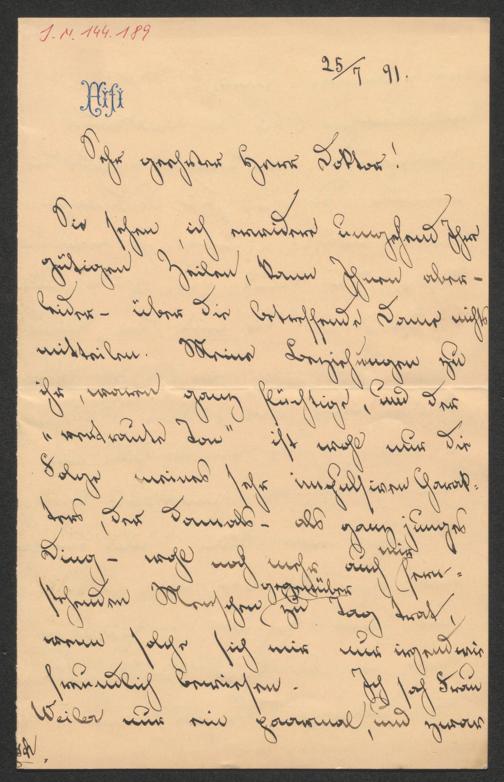 J.N. 144.189
25/7 91.
Fifi
Sehr geehrter Herr Doktor!
Sie sehen, ich erwidere umgehend Ihre
gütigen Zeilen, kann Ihnen aber –
leider – über die betreffende Dame nichts
mitteilen. Meine Beziehungen zu
ihr, waren ganz flüchtige, und der
"vertraute Ton" ist wohl nur die
Folge meines sehr impulsiven Charak-
ters, der damals – als ganz junges
Ding – wohl noch mehr auch mir fern-
stehenden Menschen gegenüber zu Tag trat,
wenn solche sich mir nur irgendwie
freundlich bewiesen. Ich sah Frau
Weiler nur ein paarmal, und zwar